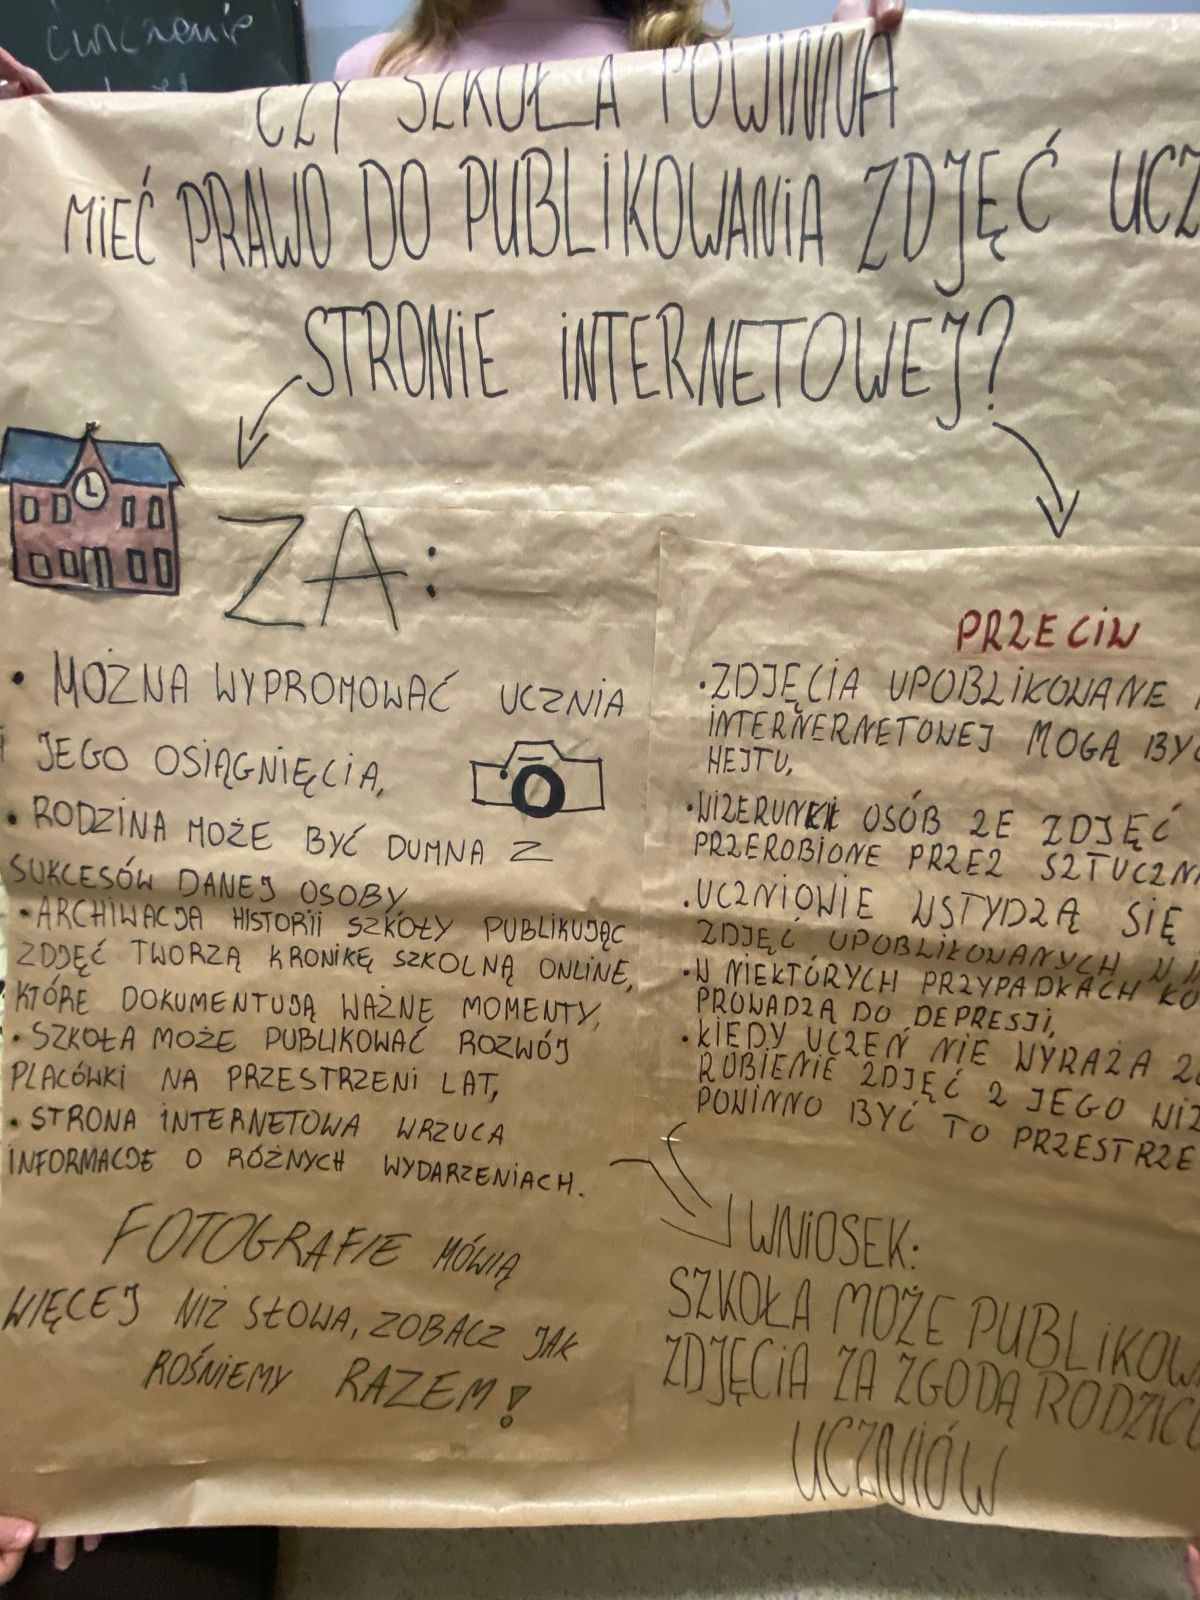 ćwiczenie
CZY SZKOŁA POWINNA
MIEĆ PRAWO DO PUBLIKOWANIA ZDJĘĆ UCZ
STRONIE INTERNETOWEJ?
ZA:
• MOŻNA WYPROMOWAĆ UCZNIA
I JEGO OSIĄGNIĘCIA,
• RODZINA MOŻE BYĆ DUMNA Z
SUKCESÓW DANEJ OSOBY
• ARCHIWACJA HISTORII SZKOŁY PUBLIKUJĄC
ZDJĘĆ TWORZĄ KRONIKĘ SZKOLNĄ ONLINE,
KTÓRE DOKUMENTUJĄ WAŻNE MOMENTY,
• SZKOŁA MOŻE PUBLIKOWAĆ ROZWÓJ
PLACÓWKI NA PRZESTRZENI LAT,
• STRONA INTERNETOWA WRZUCA
INFORMACJE O RÓŻNYCH WYDARZENIACH.
FOTOGRAFIE MÓWIĄ
WIĘCEJ NIŻ SŁOWA, ZOBACZ JAK
ROŚNIEMY RAZEM!
PRZECIW
• ZDJĘCIA UPOBLIKOWANE
INTERNERNETOWEJ MOGĄ BYĆ
HEJTU,
• WIZERUNKI OSÓB ZE ZDJĘĆ
PRZEROBIONE PRZEZ SZTUCZN
• UCZNIOWIE WSTYDZĄ SIĘ
ZDJĘĆ UPOBLIKOWANYCH W
• W NIEKTÓRYCH PRZYPADKACH KO
PROWADZĄ DO DEPRESJI,
• KIEDY UCZEŃ NIE WYRAŻA Z
ROBIENIE ZDJĘĆ Z JEGO WIZ
POWINNO BYĆ TO PRZESTRZE
WNIOSEK:
SZKOŁA MOŻE PUBLIKOWA
ZDJĘCIA ZA ZGODĄ RODZICÓ
UCZNIÓW